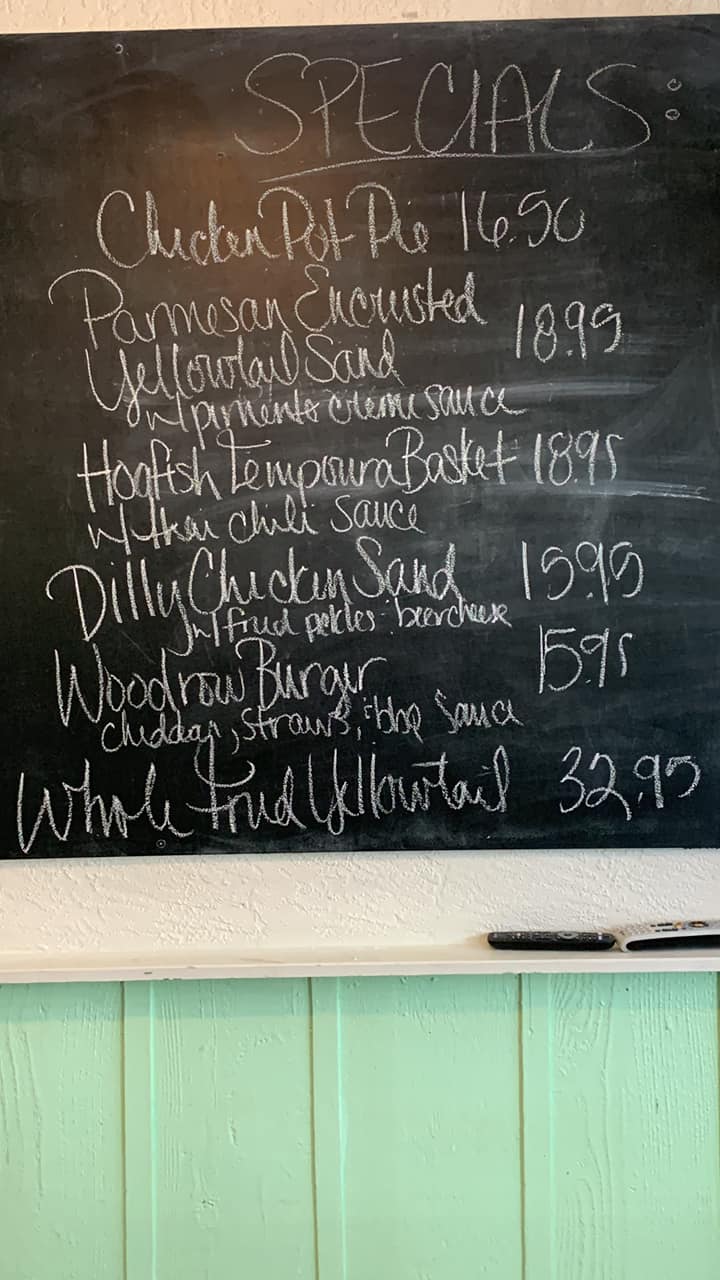 SPECIALS:
Chicken Pot Pie 16.50
Parmesan Encrusted
Yellowtail Sand 18.95
w/ pimento creme sauce
Hogfish Tempoura Basket 18.95
w/ thai chili sauce
Dilly Chicken Sand 15.95
w/ fried pickles : beercheese
Woodrow Burger 15.95
cheddar, straws, : bbq sauce
Whole Fried Yellowtail 32.95